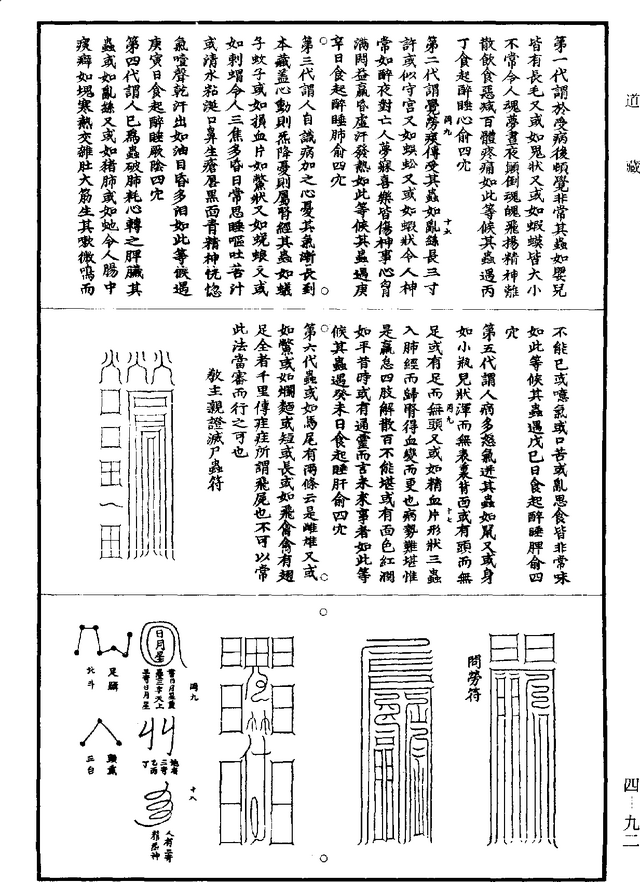 道藏
第一代謂於受病後頓覺非常其蟲如嬰兒
皆有長毛又或如鬼狀又或如蝦蟆皆大小
不常令人魂夢晝夜顛倒魂魄飛揚精神離
散飲食惡減百體疼痛如此等候其蟲遇丙
丁食起醉睡心俞四穴
第二代謂覺勞疾傳受其蟲如亂絲長三寸
許或似守宮又如蜈蚣又或如蝦狀令人神
常如醉夜對亡人夢寐喜樂皆傷神事心胷
滿悶益羸昏虛汗發熱如此等候其蟲遇庚
辛日食起醉睡肺俞四穴
第三代謂人自識病加之心憂其氣漸長到
本藏蓋心動則炁降憂則屬腎經其蟲如蟻
子蚊子或如損血片如鱉狀又如蜣蜋又或
如刺蝟令人三焦多昏日常思睡嘔吐苦汁
或清水粘涎口鼻生瘡唇黑面青精神恍惚
氣喧聲乾汗出如油目昏多淚如此等候遇
庚寅日食起醉睡厥陰四穴
第四代謂人已爲蟲破肺耗心轉之脾臟其
蟲或如亂絲又或如猪肺或如蚍令人腸中
痰癖如塊寒熱交雜肚大筋生其嗽微鳴而
不能已或噫氣或口苦或亂思食皆非常味
如此等候其蟲遇戊巳日食起醉睡脾俞四
穴
第五代謂人病多怒氣逆其蟲如鼠又或身
如小瓶兒狀渾而無表裏背面或有頭而無
足或有足而無頭又或如精血片形狀三蟲
入肺經而歸腎得血變而更也病勢難堪惟
是羸怠四肢解散百不能堪或有面色紅潤
如平昔時或有通靈而言未來事者如此等
候其蟲遇癸未日食起睡肝俞四穴
第六代蟲或如馬尾有兩條云是雌雄又或
如鱉或如爛麵或短或長或如飛禽禽有翅
足全者千里傳疰疰所謂飛屍也不可以常
此法當審而行之可也
教主親證滅尸蟲符
問勞符
日月星
足羅
北斗
三台
丁
四九二